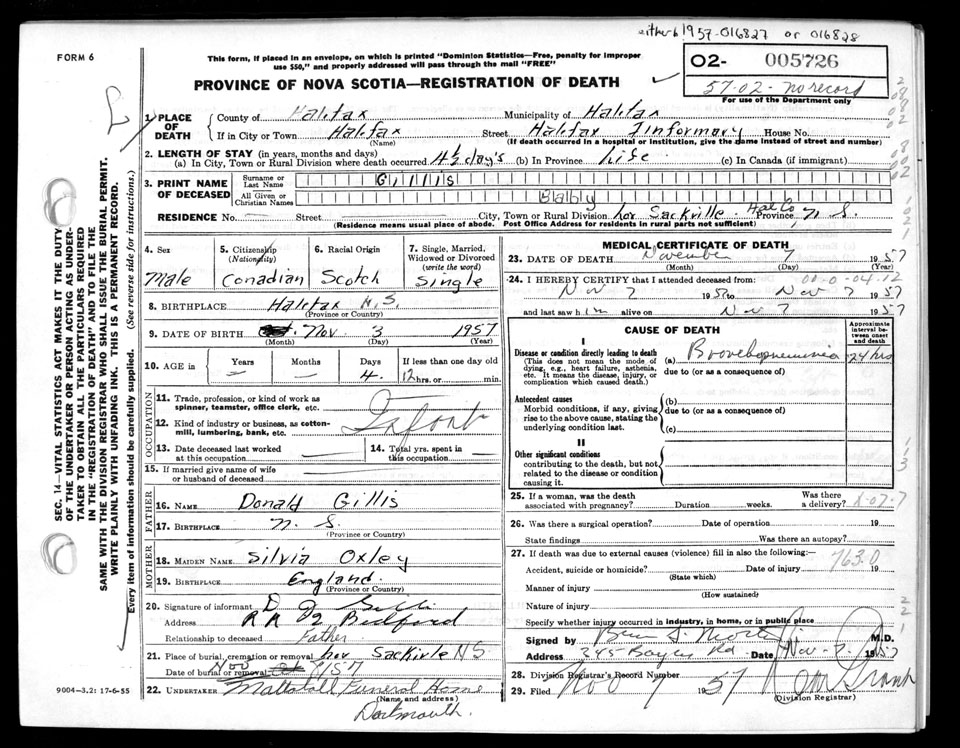 either 1957-016827 or 016828
FORM 6
This form, if placed in an envelope, on which is printed "Dominion Statistics—Free, penalty for improper
use $50," and properly addressed will pass through the mail "FREE"
PROVINCE OF NOVA SCOTIA—REGISTRATION OF DEATH
02- 005726
57-02- no record
For use of the Department only
1. PLACE OF DEATH
County of Halifax Municipality of Halifax
If in City or Town Halifax Street Halifax Infirmary House No.
(Name) (If death occurred in a hospital or institution, give the name instead of street and number)
2. LENGTH OF STAY (in years, months and days)
(a) In City, Town or Rural Division where death occurred 4½ day's (b) In Province Life (c) In Canada (if immigrant)
3. PRINT NAME OF DECEASED
Surname or Last Name Gillis
All Given or Christian Names Baby
RESIDENCE No. Street City, Town or Rural Division Lor Sackville Hal Co Province N S.
(Residence means usual place of abode. Post Office Address for residents in rural parts not sufficient)
4. Sex Male
5. Citizenship (Nationality) Canadian
6. Racial Origin Scotch
7. Single, Married, Widowed or Divorced (write the word) Single
8. BIRTHPLACE Halifax N.S.
(Province or Country)
9. DATE OF BIRTH Nov. 3 1957
(Month) (Day) (Year)
10. AGE in Years Months Days 4. If less than one day old 12 hrs. or min.
OCCUPATION
11. Trade, profession, or kind of work as spinner, teamster, office clerk, etc.
Infant
12. Kind of industry or business, as cotton-mill, lumbering, bank, etc.
13. Date deceased last worked at this occupation
14. Total yrs. spent in this occupation
15. If married give name of wife or husband of deceased
FATHER
16. NAME Donald Gillis
17. BIRTHPLACE N. S.
(Province or Country)
MOTHER
18. MAIDEN NAME Silvia Oxley
19. BIRTHPLACE England.
(Province or Country)
20. Signature of informant D J Gillis
Address RR #2 Bedford
Relationship to deceased Father
21. Place of burial, cremation or removal Lor Sackville NS
Date of burial or removal Nov 9/57
22. UNDERTAKER Mattatall Funeral Home
(Name and address)
Dartmouth.
MEDICAL CERTIFICATE OF DEATH
23. DATE OF DEATH November 7 1957
(Month) (Day) (Year)
24. I HEREBY CERTIFY that I attended deceased from: 00-0-04.12
Nov 7 1957 to Nov 7 1957
and last saw him alive on Nov 7 1957
CAUSE OF DEATH
Approximate interval between onset and death
I
Disease or condition directly leading to death (a) Bronchopneumonia 24 hrs
(This does not mean the mode of dying, e.g., heart failure, asthenia, etc. It means the disease, injury, or complication which caused death.)
due to (or as a consequence of)
Antecedent causes
Morbid conditions, if any, giving rise to the above cause, stating the underlying condition last.
(b)
due to (or as a consequence of)
(c)
II
Other significant conditions
contributing to the death, but not related to the disease or condition causing it.
25. If a woman, was the death associated with pregnancy? Duration weeks. Was there a delivery?
26. Was there a surgical operation? Date of operation 19
State findings Was there an autopsy?
27. If death was due to external causes (violence) fill in also the following:— 763.0
Accident, suicide or homicide? Date of injury 19
(State which)
Manner of injury
(How sustained)
Nature of injury
Specify whether injury occurred in industry, in home, or in public place
Signed by M.D.
Address 345 Bayers Rd. Date Nov-7. 1957
28. Division Registrar's Record Number
29. Filed Nov 7 1957
(Division Registrar)
9004-3.2: 17-6-55
SEC. 14—VITAL STATISTICS ACT MAKES IT THE DUTY
OF THE UNDERTAKER OR PERSON ACTING AS UNDER-
TAKER TO OBTAIN ALL THE PARTICULARS REQUIRED
IN THE "REGISTRATION OF DEATH" AND TO FILE THE
SAME WITH THE DIVISION REGISTRAR WHO SHALL ISSUE THE BURIAL PERMIT.
WRITE PLAINLY WITH UNFADING INK. THIS IS A PERMANENT RECORD.
Every item of information should be carefully supplied. (See reverse side for instructions.)